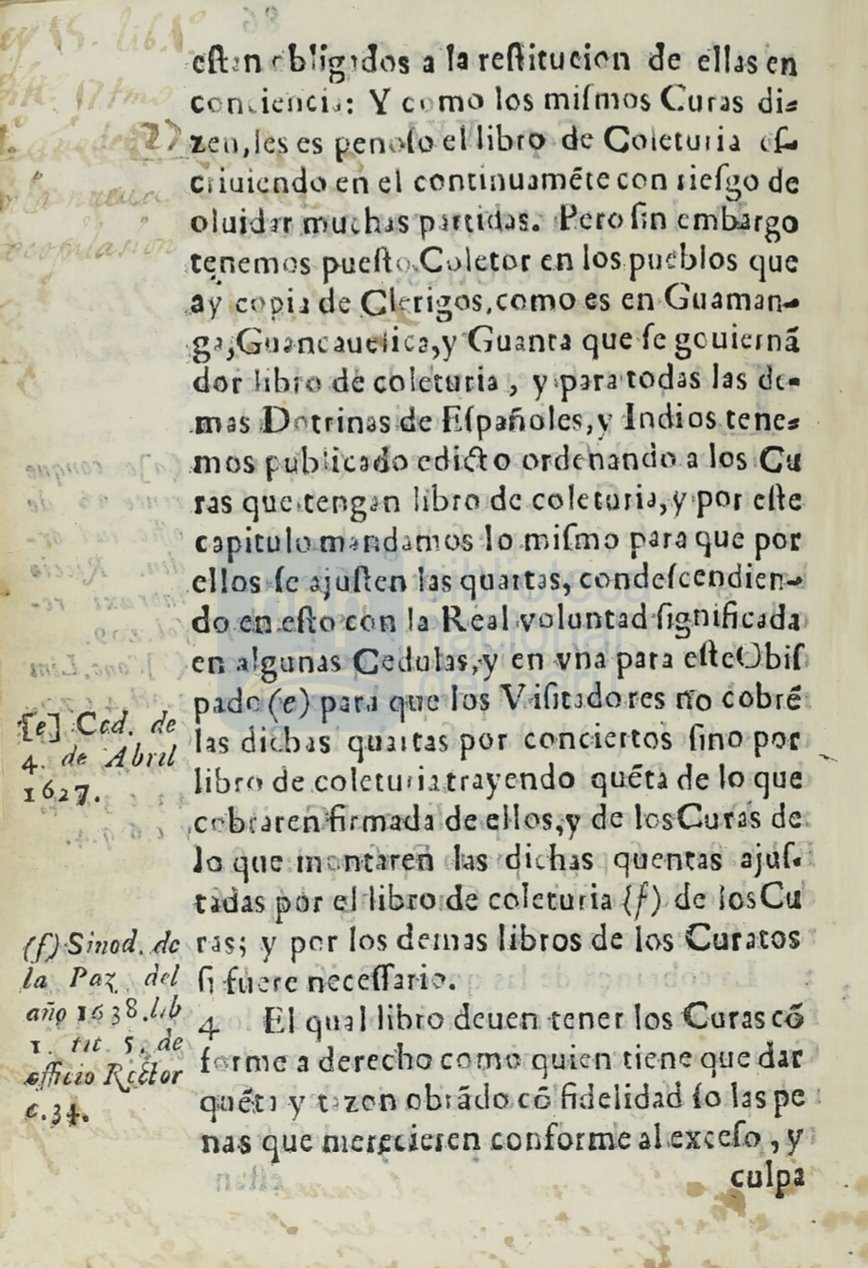 ley 15. lib. 1º
recopilasion
eſtan obligados a la reſtitucion de ellas en
conciencia: Y como los miſmos Curas di-
zen, les es penoſo el libro de Coleturia eſ-
criuiendo en el continuamẽte con rieſgo de
oluidar muchas partidas. Pero ſin embargo
tenemos pueſto Coletor en los pueblos que
ay copia de Clerigos, como es en Guaman-
ga, Guancauelica, y Guanta que ſe gouiernã
dor libro de coleturia, y para todas las de-
mas Dotrinas de Eſpañoles, y Indios tene-
mos publicado edicto ordenando a los Cu
ras que tengan libro de coleturia, y por eſte
capitulo mandamos lo miſmo para que por
ellos ſe ajuſten las quartas, condeſcendien-
do en eſto con la Real voluntad ſignificada
en algunas Cedulas, y en vna para eſte Obiſ
pado (e) para que los Viſitadores no cobrẽ
las dichas quartas por conciertos ſino por
libro de coleturia trayendo quẽta de lo que
cobraren firmada de ellos, y de los Curas de
lo que montaren las dichas quentas ajuſ-
tadas por el libro de coleturia (f) de los Cu
ras; y por los demas libros de los Curatos
ſi fuere neceſſario.
4 El qual libro deuen tener los Curas cõ
forme a derecho como quien tiene que dar
quẽta y razon obrãdo cõ fidelidad ſo las pe
nas que merecieren conforme al exceſo, y
culpa
[e] Ced. de
4. de Abril
1627.
(f) Sinod. de
la Paz del
año 1638. lib
1. tit 5. de
officio Rector
c. 34.